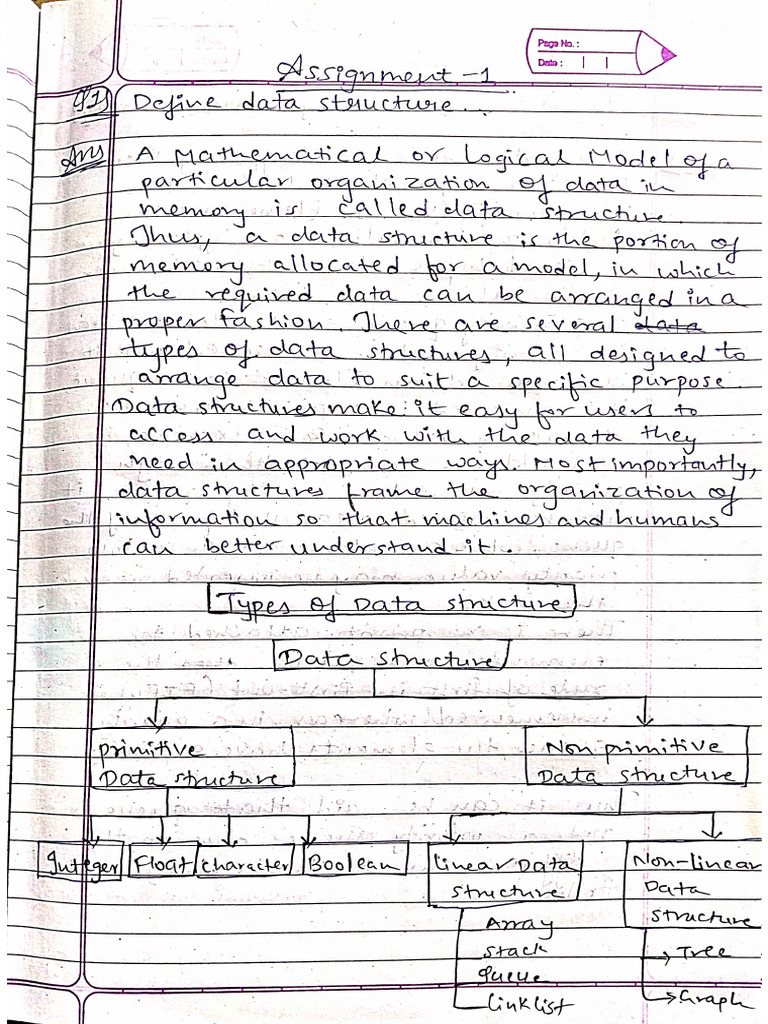 Page No. :
Date :
Assignment -1
Q1) Define data structure...
Ans A Mathematical or Logical Model of a
particular organization of data in
memory is called data structure.
Thus, a data structure is the portion of
memory allocated for a model, in which
the required data can be arranged in a
proper fashion. There are several data
types of data structures, all designed to
arrange data to suit a specific purpose.
Data structures make it easy for users to
access and work with the data they
need in appropriate ways. Most importantly,
data structures frame the organization of
information so that machines and humans
can better understand it.
Types of Data structure
Data structure
primitive
Data structure
Non primitive
Data structure
Integer Float character Boolean
Linear Data
structure
Non-Linear
Data
structure
Array
stack
queue
linklist
Tree
Graph